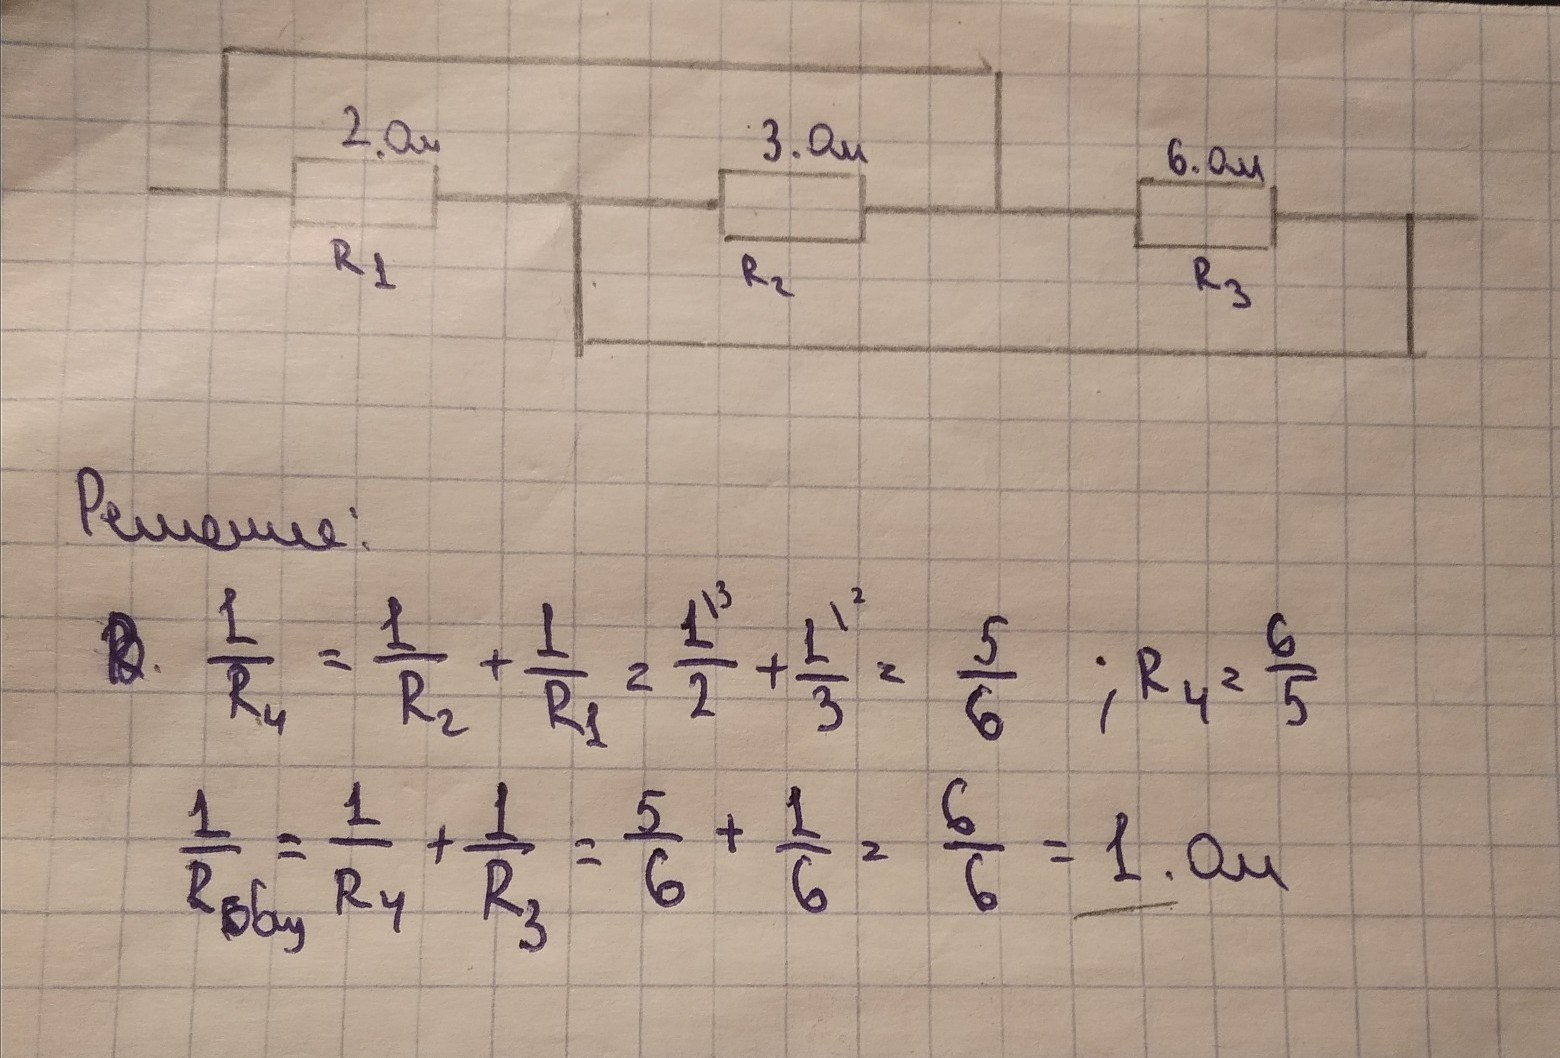 2.Ом 3.Ом 6.Ом
R1 R2 R3
Решение:
1/R4 = 1/R2 + 1/R1 = 1\3/2 + 1\2/3 = 5/6 ; R4 = 6/5
1/Rобщ = 1/R4 + 1/R3 = 5/6 + 1/6 = 6/6 = 1.Ом